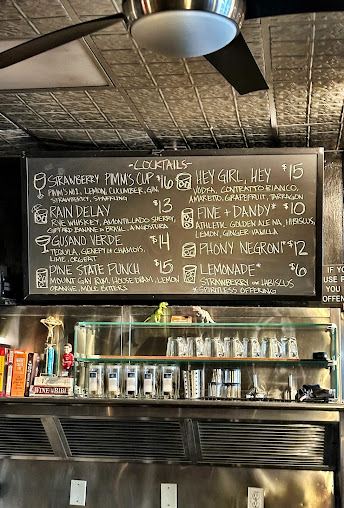 -COCKTAILS-
STRAWBERRY PIMM'S CUP $16
PIMM'S No.1, LEMON, CUCUMBER, GIN,
STRAWBERRY, SPARKLING
RAIN DELAY $13
RYE WHISKEY, AMONTILLADO SHERRY,
GIFFARD BANANE du BRASIL, ANGOSTURA
GUSANO VERDE $14
TEQUILA, GENEPY de CHAMOIS,
LIME, ORGEAT
PINE STATE PUNCH $15
MOUNT GAY RUM, HOUSE DRAM, LEMON
ORANGE, MOLE BITTERS
HEY GIRL, HEY $15
VODKA, CONTRATTO BIANCO,
AMARETTO, GRAPEFRUIT, TARRAGON
FINE + DANDY* $10
ATHLETIC GOLDEN ALE NA, HIBISCUS,
LEMON, GINGER, VANILLA
PHONY NEGRONI* $12
LEMONADE* $6
STRAWBERRY or HIBISCUS
* SPIRITLESS OFFERING
IF YO
USE F
YOU
OFFEN
WINE BIBLE